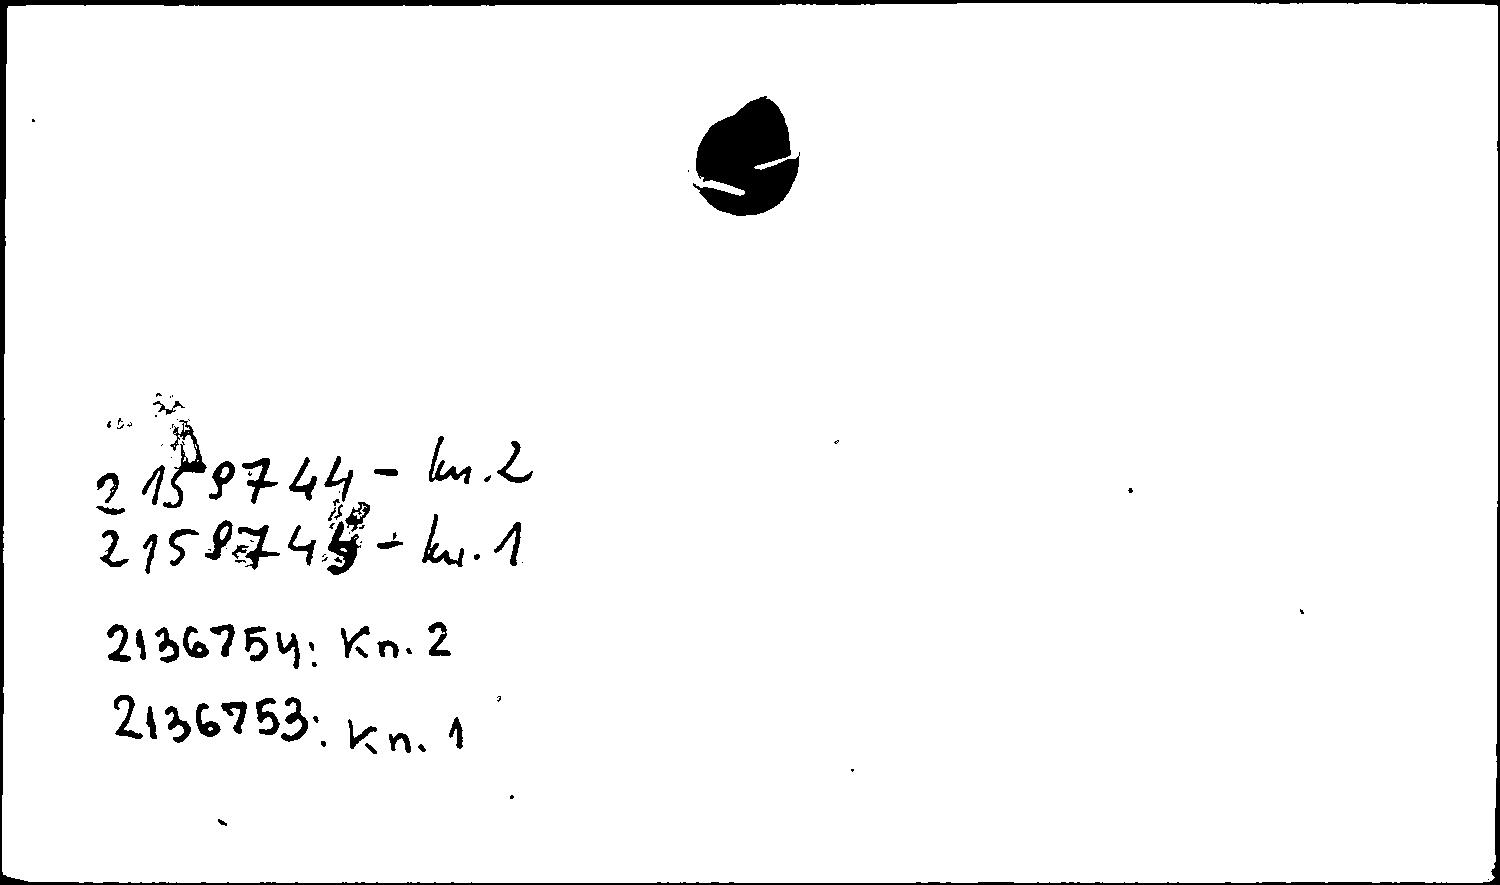 2159744 - kn. 2
215974 - kn. 1
2136754: Kn. 2
2136753: Kn. 1